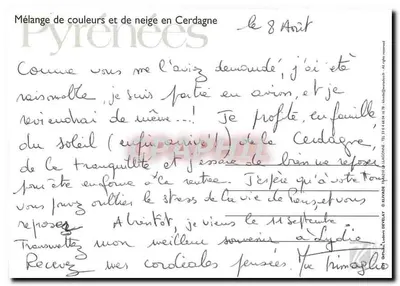 Mélange de couleurs et de neige en Cerdagne
Pyrénées
le 8 Août
Comme vous me l'aviez demandé, j'ai été
raisonnable, je suis partie en avion, et je
reviendrai de même...! Je profite, en famille
du soleil (enfin arrivé!) de la Cerdagne,
de la tranquillité et j'essaie de bien me reposer
pour être en forme à la rentrée. J'espère qu'à votre tour
vous pouvez oublier le stress de la vie de et vous
reposer A bientôt, je viens le 11 septembre
Transmettez mon meilleur souvenir à Lydie
Recevez mes cordiales pensées.